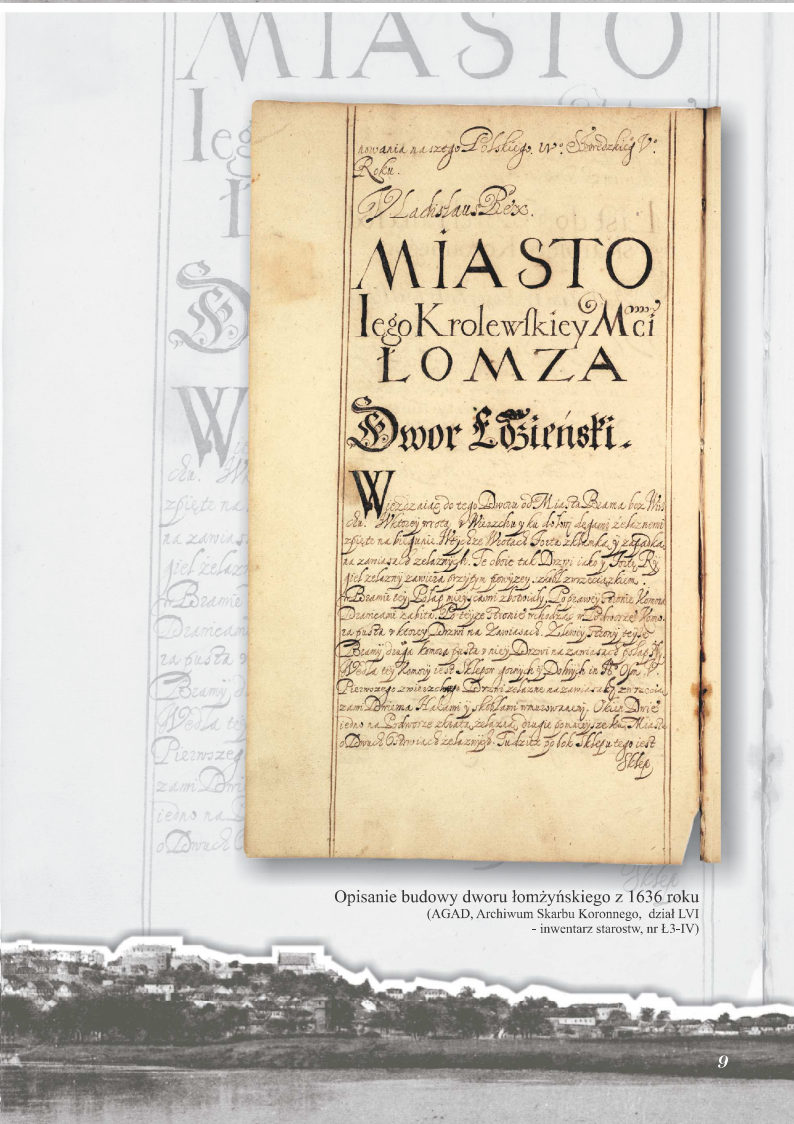 nowania naszego Polskiego. IV°. Szwedzkieg V°.
Roku.
Vladislaus Rex.
MIASTO
Iego Krolewſkiey Mći
ŁOMZA
Dwor Łomzieński.
Wieżdzaiąc do tego Dworu od Miasta Brama bez Wi
chu. W ktorey wrota, v Wieszchu y ku dołowi
spięte na biegunie. W tychże Wrotach Forta z klamką y
na zawiasach zelaznych. Te obie tak Drzwi iako y Fortę Ry
giel żelazny zawiera przytym
W Bramie tey Pułap mieyscami zbutwiały, Po prawey stronie Komna
Dranicami zabita. Po teyże stronie wchodząc w Podworze Komo
ra pusta w ktorey Drzwi na Zawiasach. Z lewey strony teyże
Bramy druga komora pusta w niey Drzwi na zawiasach
Wedla tey Komory iest Sklepow gornych y Dolnych in N° Osm.
Pierwszego z wierzchu Drzwi żelazne na zawiasach, z wrzecią
zami Dwiema Hakami y skoblami wmurowanemi. Okien Dwie
iedno na Podworze krata żelazna, drugie ku Miastu
o Dwuch żelaznych. Tudziesz po bok Sklepu tego iest
Sklep
Opisanie budowy dworu łomżyńskiego z 1636 roku
(AGAD, Archiwum Skarbu Koronnego, dział LVI
- inwentarz starostw, nr Ł3-IV)
9